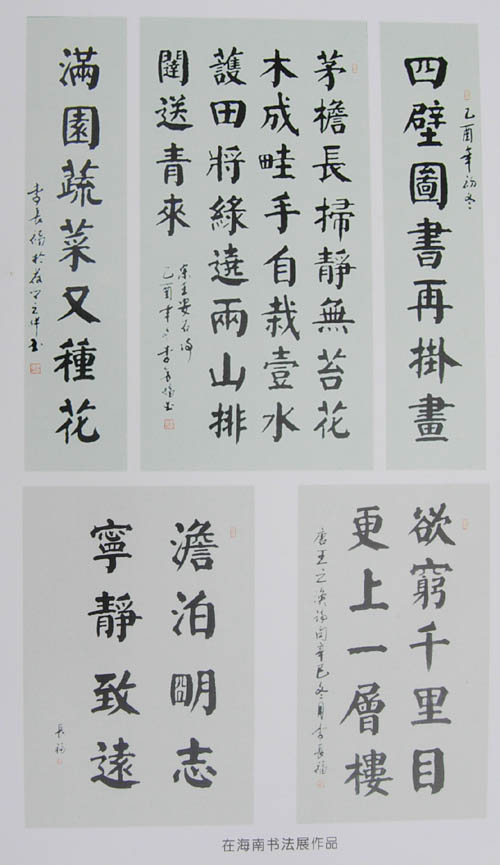 四壁圖書再掛畫
乙酉年初冬
茅檐長掃靜無苔花
木成畦手自栽壹水
護田將綠遶兩山排
闥送青來
宋王安石詩
乙酉年李長福书
滿園蔬菜又種花
李長福於
欲窮千里目
更上一層樓
唐王之渙詩句辛巳冬月李長福
澹泊明志
寧靜致遠
長福
在海南书法展作品